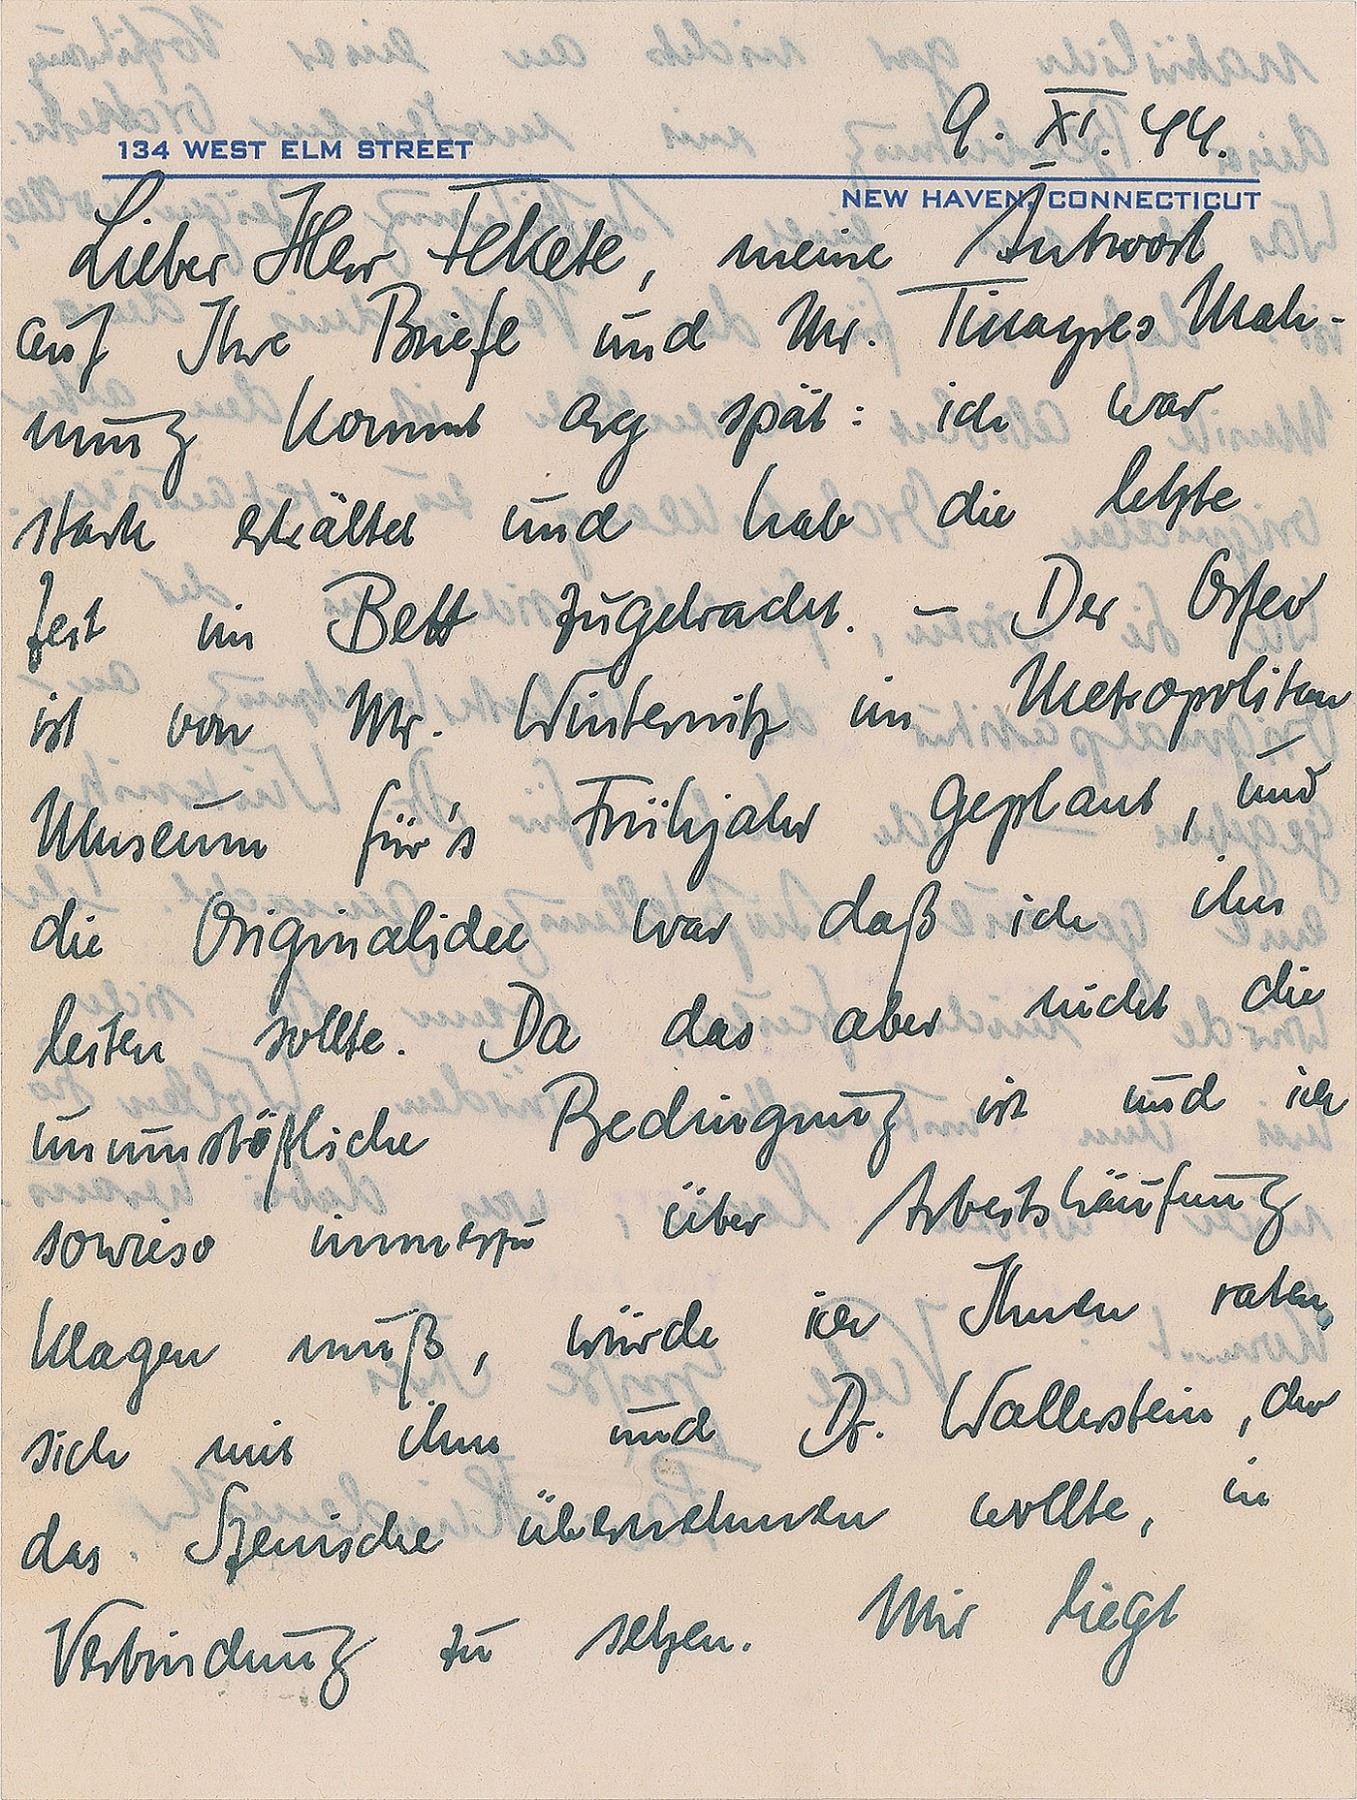 9. XI. 44.
134 WEST ELM STREET
NEW HAVEN, CONNECTICUT
Lieber Herr Fekete, meine Antwort
auf Ihre Briefe und Mr. Tinayres Mah-
nung kommt arg spät: ich war
stark erkältet und hab die letzte
Zeit im Bett zugebracht. – Der Orfeo
ist von Mr. Winternitz im Metropolitan
Museum für's Frühjahr geplant, und
die Originalidee war daß ich ihn
leiten sollte. Da das aber nicht die
unumstößliche Bedingung ist und ich
sowieso immerzu über Arbeitshäufung
klagen muß, würde ich Ihnen raten,
sich mit ihm und Dr. Wallerstein, der
das Szenische übernehmen wollte, in
Verbindung zu setzen. Mir liegt